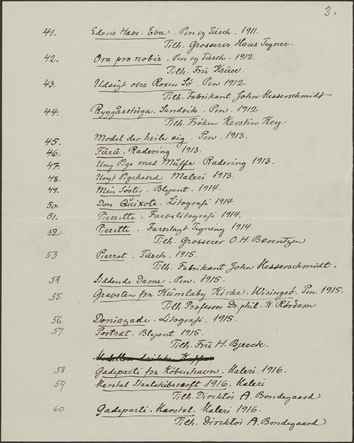 3.
41. Edvin Have. Pen og Tusch. 1911.
Tilh. Grosserer Hans Tegner.
42. Ora pro nobis. Pen og Tusch. 1912.
Tilh. Fru
43. Udsigt over Sø. Pen 1912.
Tilh. Fabrikant John Hesserschmidt
44. Ryggåsstuga. Pen. 1912.
Tilh. Frøken Kerstin Key
45. Model der hviler sig. Pen. 1913.
46. Radering 1913.
47. Ung Pige med Muffe. Radering 1913.
48. Ungt Pigehoved. Maleri 1913.
49. Min Søster. Blyant. 1914.
50. Don Quixote. Litografi 1914.
51. Pierette. Farvelitografi 1914.
52. Pierette. Farvelagt Tegning 1914
Tilh. Grosserer O.H. Berentzen
53 Pierrot. Tusch. 1915.
Tilh. Fabrikant John Hesserschmidt.
54 Siddende Dame. Pen. 1915.
55 Gravsten fra Kumlaby Kirke. Wisingsö. Pen 1915.
Tilh. Professor Dr. phil. K. Rördam
56 Doniazade. Litografi. 1915.
57 Portræt. Blyant 1915.
Tilh. Fru H. Bjerck.
58 Gadeparti fra København. Maleri. 1916.
59 Marstal Staalskibsværft 1916. Maleri
Tilh. Direktør A. Bondegaard
60 Gadeparti. Marstal. Maleri 1916.
Tilh. Direktør A. Bondegaard